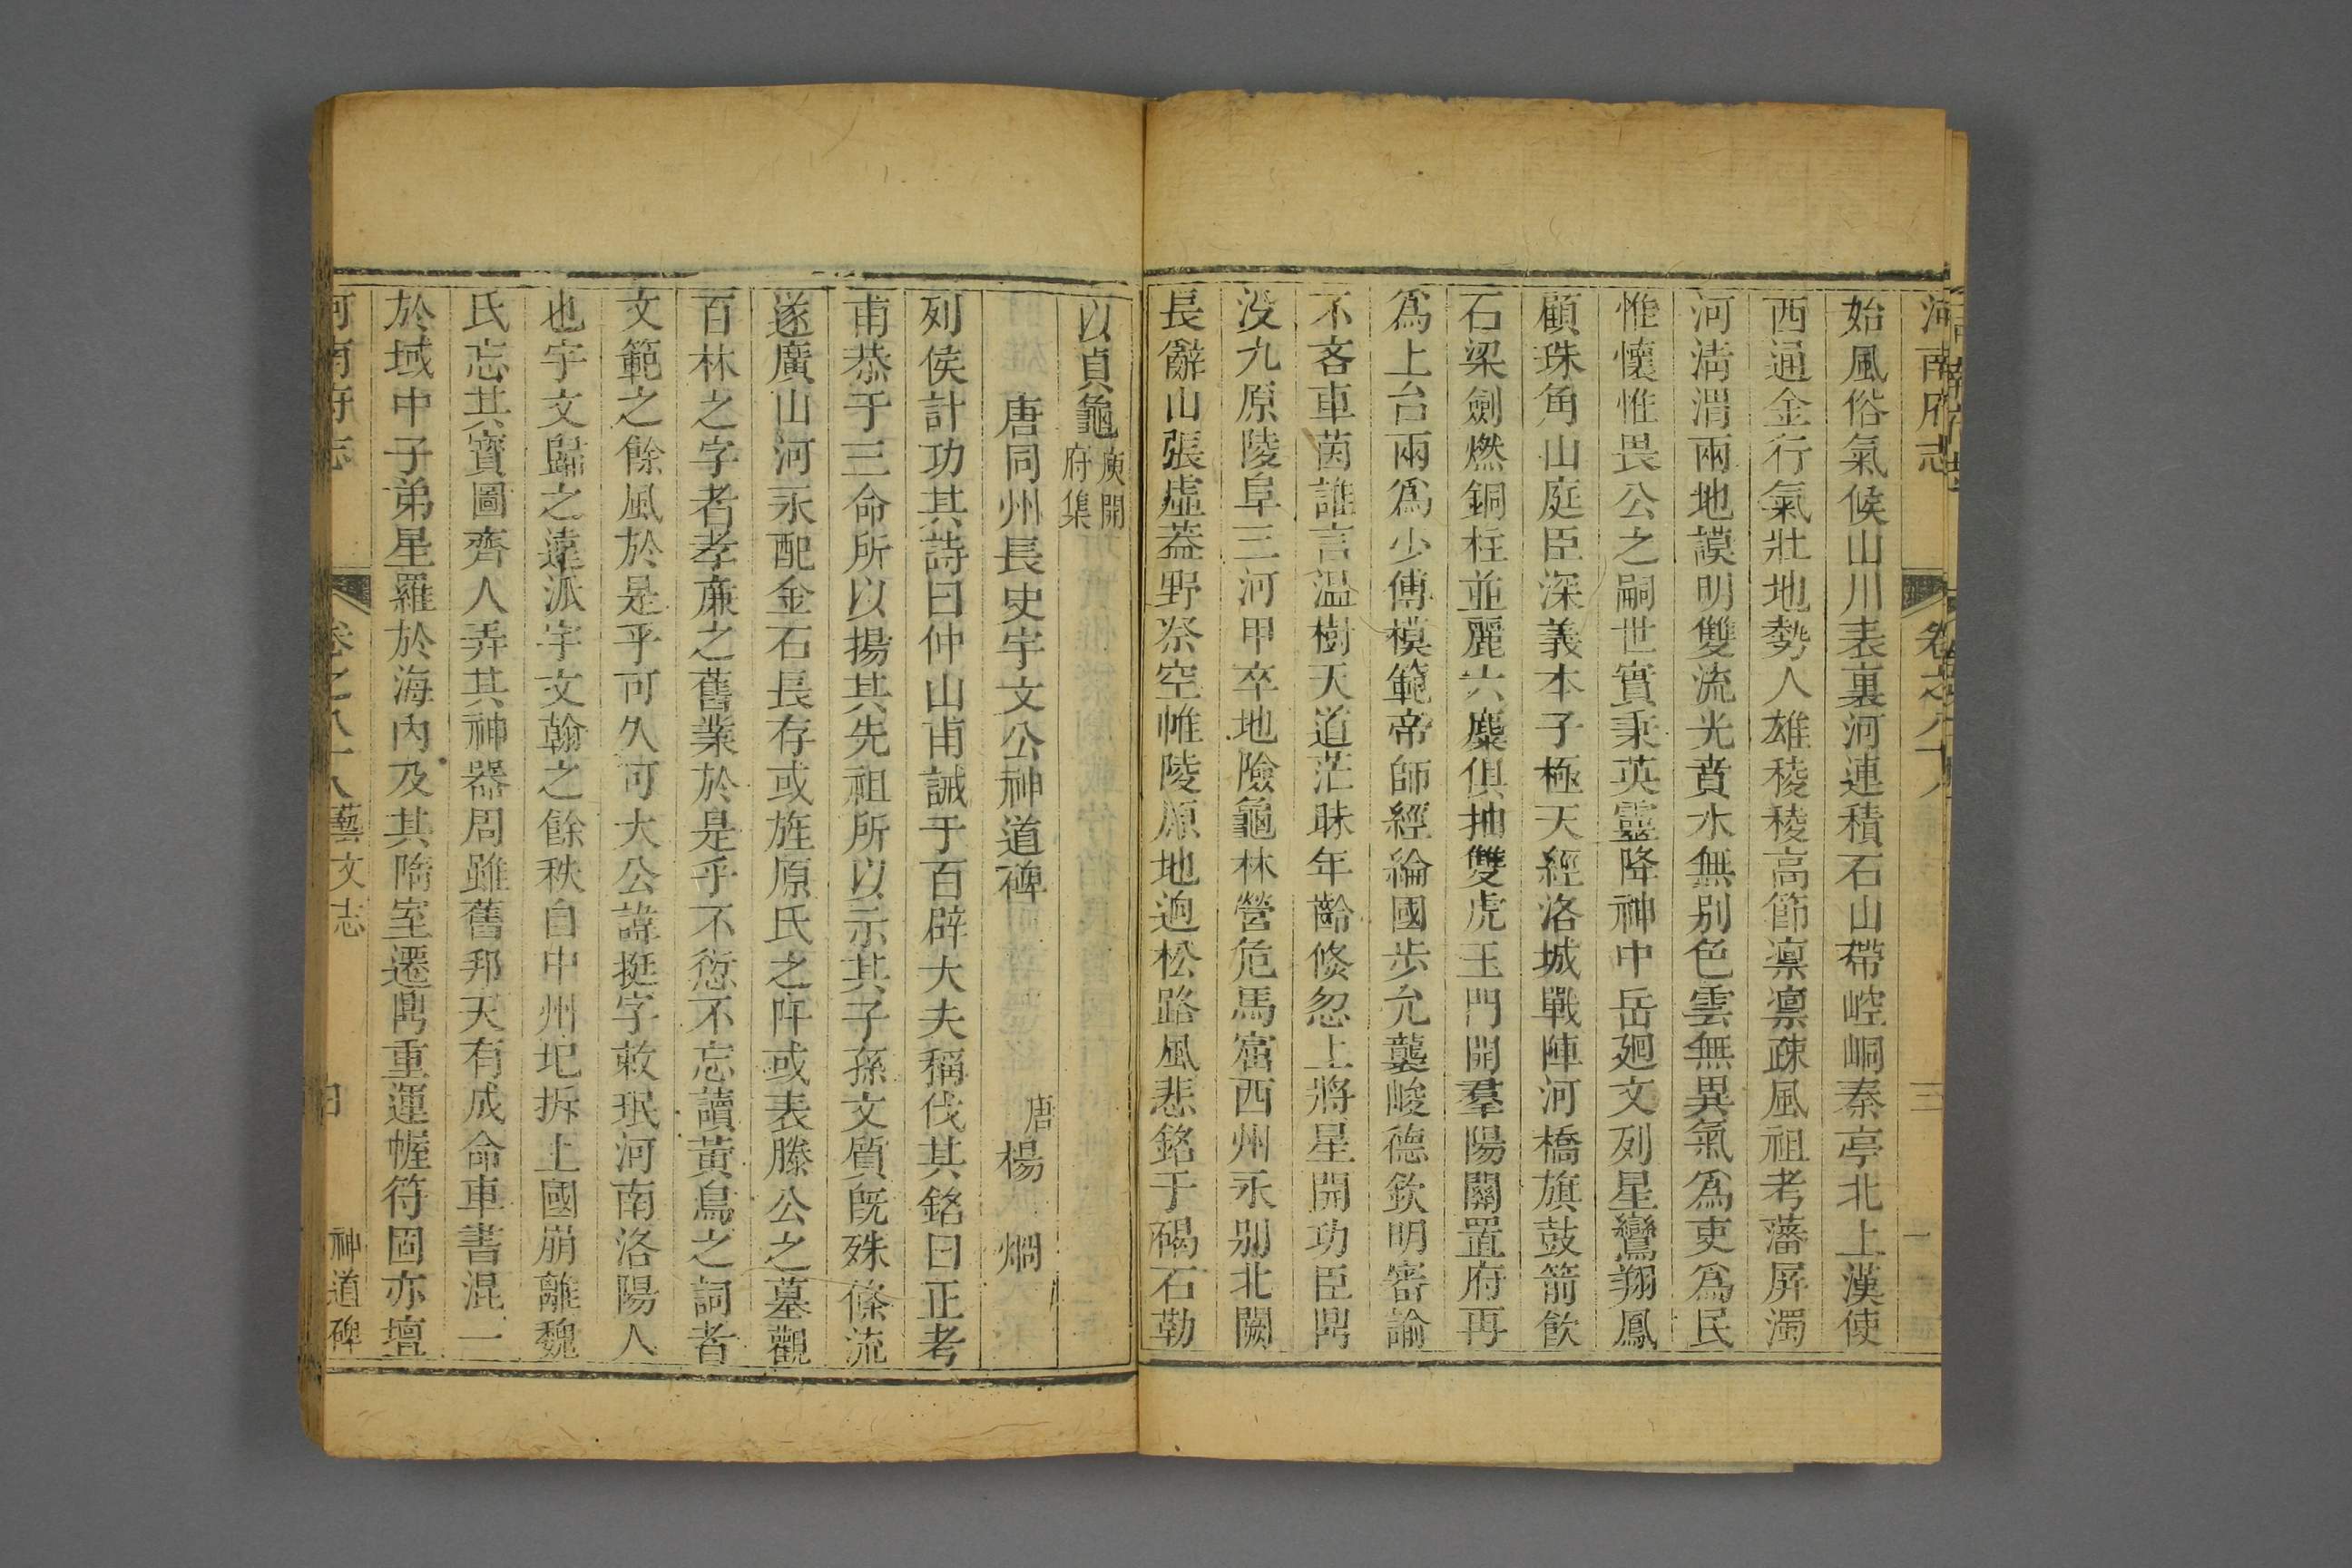 河南府志 卷之八十八 三
始風俗氣候山川表裏河連積石山帶崆峒秦亭北上漢使
西通金行氣壯地勢人雄稜稜高節凛凛疎風祖考藩屏濁
河淸渭兩地謨明雙流光賁水無别色雲無異氣爲吏爲民
惟懷惟畏公之嗣世實秉英靈降神中岳廻文列星鸞翔鳳
顧珠角山庭臣深義本子極天經洛城戰陣河橋旗鼓箭飲
石梁劍燃銅柱並麗六麋俱抽雙虎玉門開羣陽關置府再
爲上台兩爲少傅模範帝師經綸國步允襲峻德欽明審諭
不吝車茵誰言溫樹天道茫昧年齡倐忽上將星開功臣鼎
没九原陵阜三河甲卒地險龜林營危馬窟西州永别北闕
長辭山張虛蓋野祭空帷陵原地逈松路風悲銘于碣石勒
以貞龜 庾開
府集
唐同州長史宇文公神道碑 唐楊 烱
列侯計功其詩曰仲山甫誡于百辟大夫稱伐其銘曰正考
甫恭于三命所以揚其先祖所以示其子孫文質旣殊條流
遂廣山河永配金石長存或旌原氏之阡或表滕公之墓觀
百林之字者孝廉之舊業於是乎不愆不忘讀黃鳥之詞者
文範之餘風於是乎可久可大公諱挺字敕珉河南洛陽人
也宇文歸之遠派宇文翰之餘秩自中州圯拆上國崩離魏
氏忘其寶圖齊人弄其神器周雖舊邦天有成命車書混一
於域中子弟星羅於海內及其隋室遷鼎重運幄符固亦壇
河南府志 卷之八十八 藝文志 四 神道碑